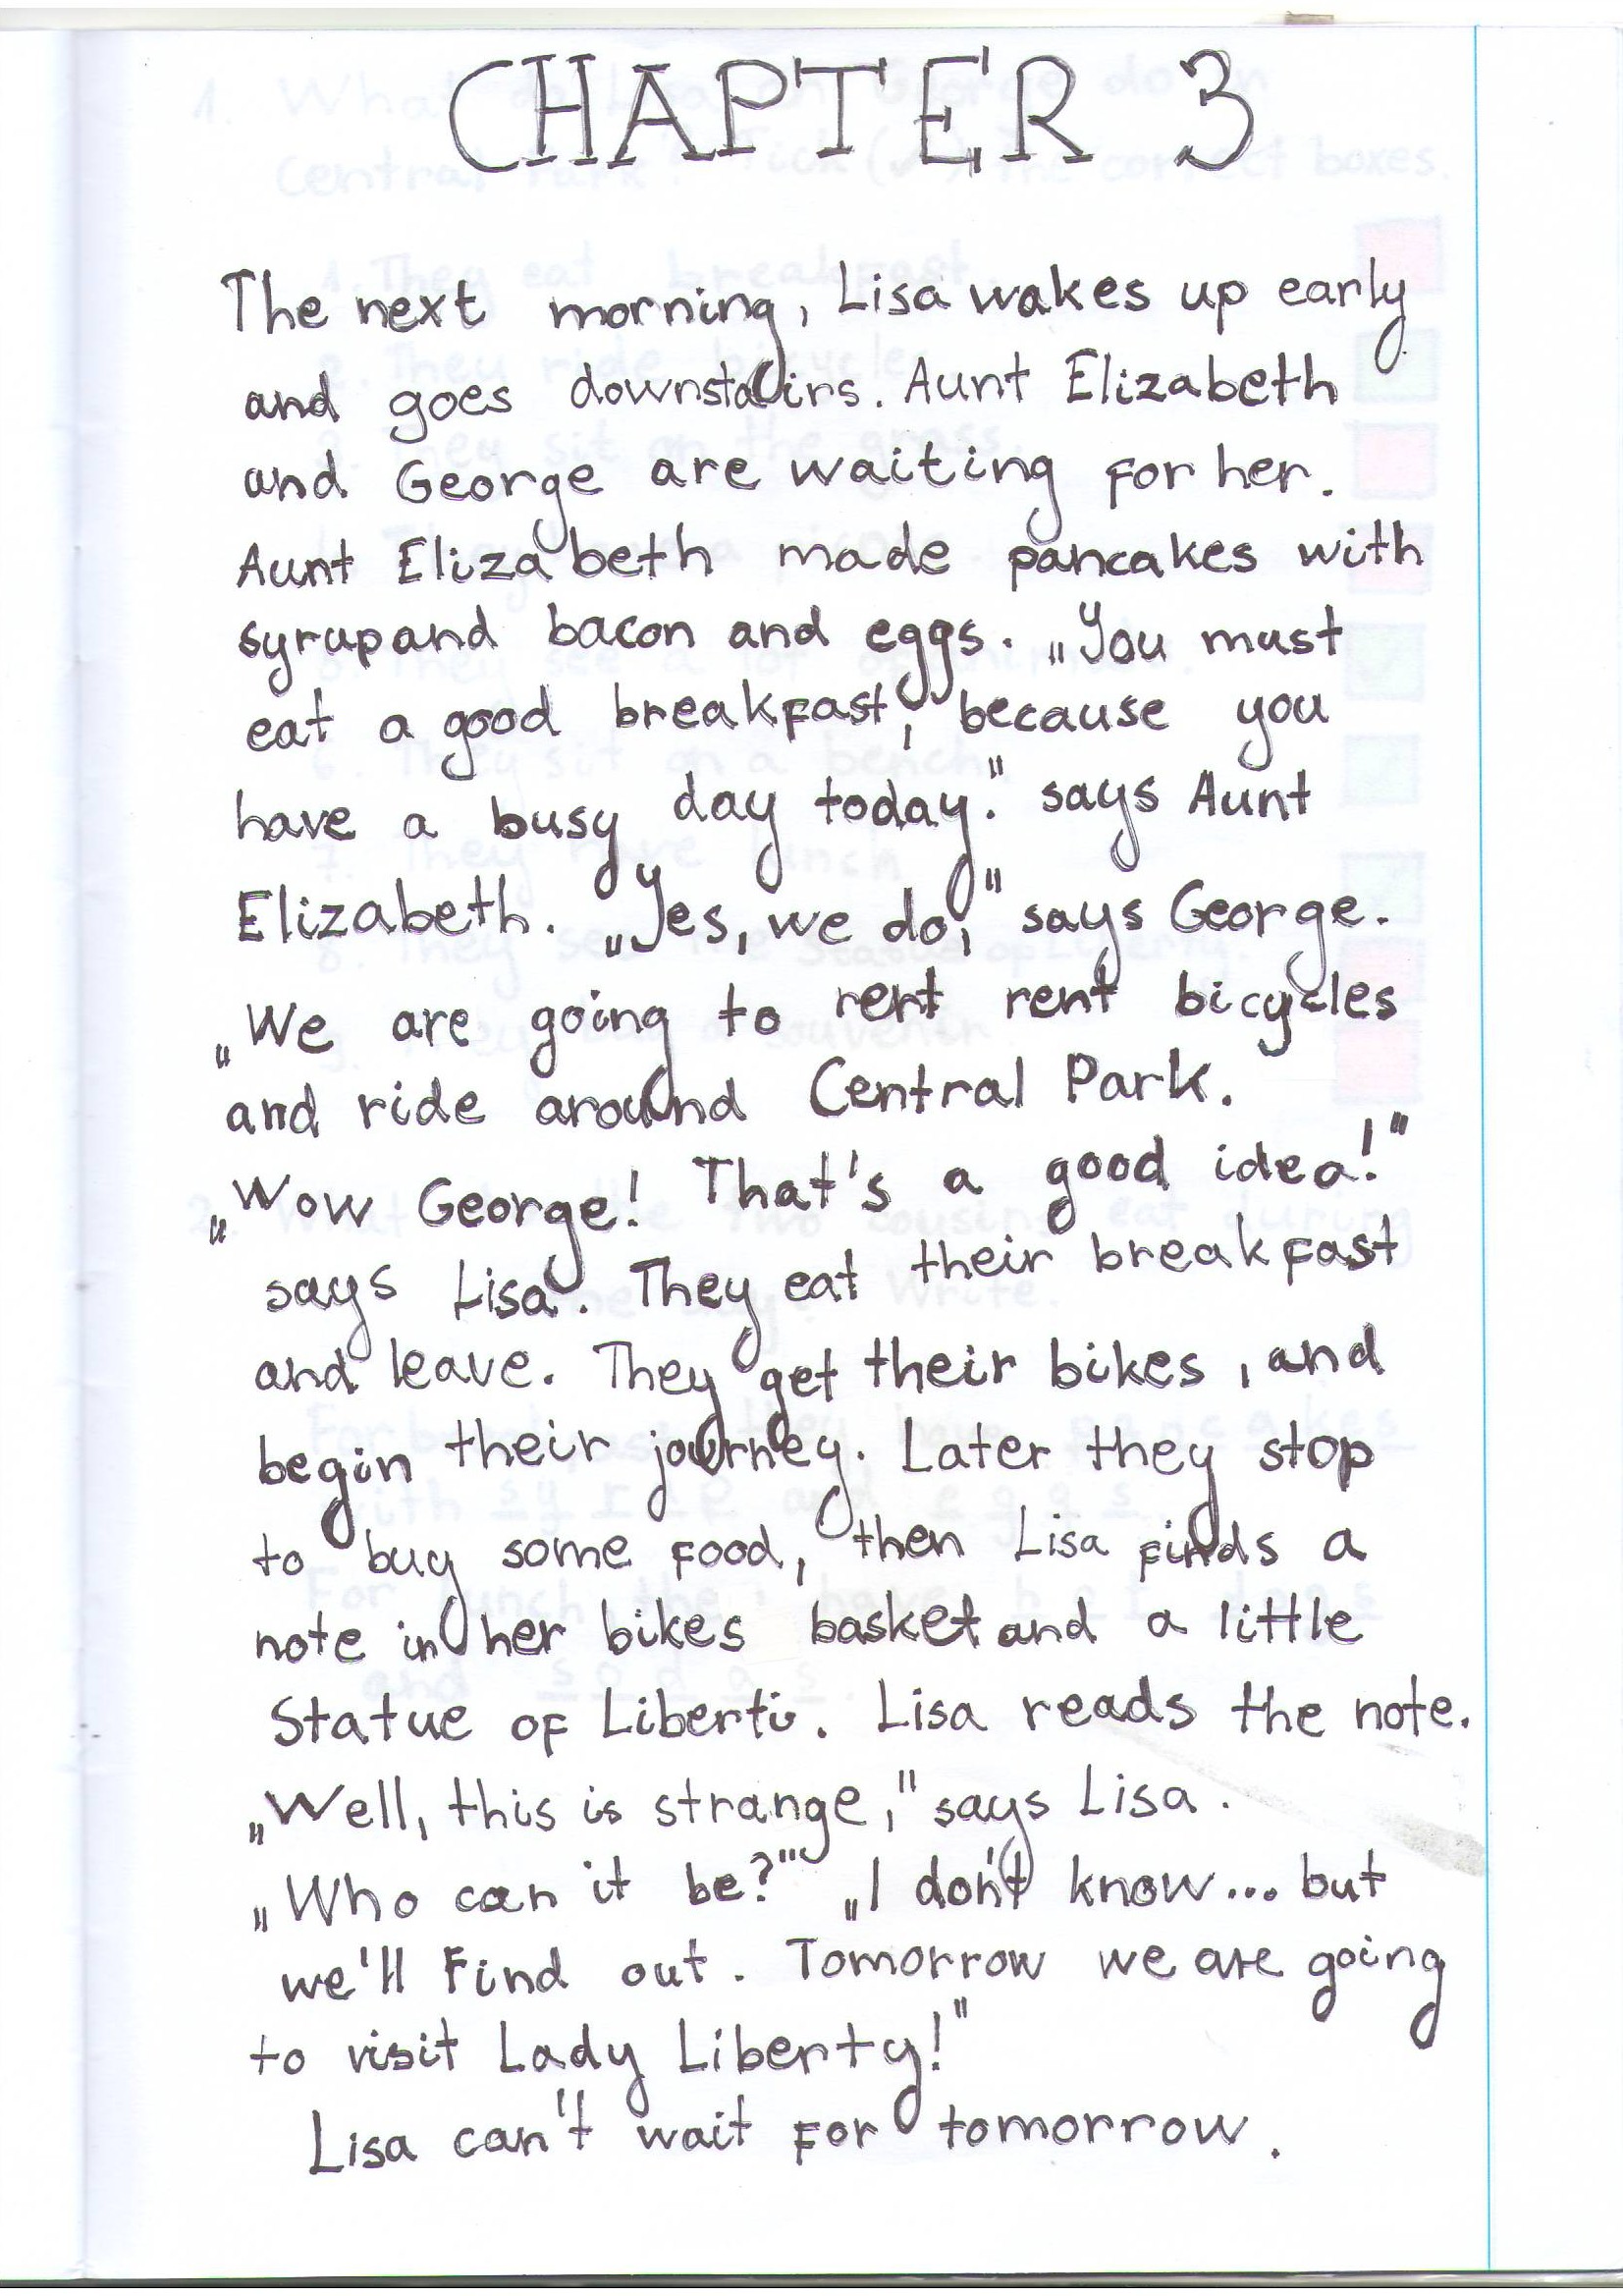 CHAPTER 3
The next morning, Lisa wakes up early
and goes downstairs. Aunt Elizabeth
and George are waiting for her.
Aunt Elizabeth made pancakes with
syrup and bacon and eggs. „You must
eat a good breakfast, because you
have a busy day today." says Aunt
Elizabeth. „Yes, we do," says George.
„We are going to rent rent bicycles
and ride around Central Park.
„Wow George! That's a good idea!"
says Lisa. They eat their breakfast
and leave. They get their bikes, and
begin their journey. Later they stop
to buy some food, then Lisa finds a
note in her bikes basket and a little
Statue of Liberti. Lisa reads the note.
„Well, this is strange," says Lisa.
„Who can it be?" „I don't know... but
we'll find out. Tomorrow we are going
to visit Lady Liberty!"
Lisa can't wait for tomorrow.